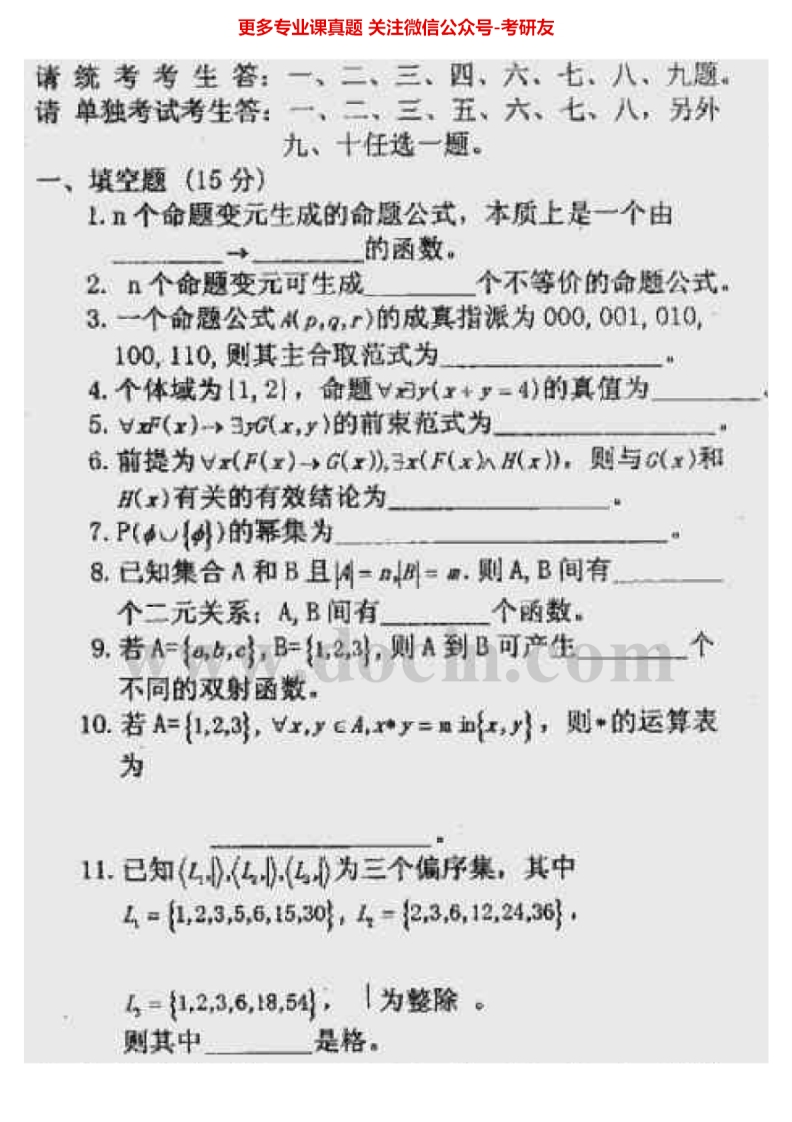 更多专业课真题 关注微信公众号-考研友
请 统 考 考 生 答：一、二、三、四、六、七、八、九题。
请 单独考试考生答：一、二、三、五、六、七、八，另外
九、十任选一题。
一、填空题 (15 分)
1. n 个命题变元生成的命题公式，本质上是一个由
________→________的函数。
2. n 个命题变元可生成________个不等价的命题公式。
3. 一个命题公式 A(p,q,r)的成真指派为 000, 001, 010,
100, 110, 则其主合取范式为________________。
4. 个体域为{1, 2}，命题∀x∃y(x + y = 4)的真值为________.
5. ∀xF(x)→∃yG(x,y)的前束范式为________________。
6. 前提为∀x(F(x)→G(x)),∃x(F(x)∧H(x))，则与G(x)和
H(x)有关的有效结论为________________。
7. P(ϕ∪{ϕ})的幂集为________________________。
8. 已知集合 A 和 B 且|A| = n,|B| = m. 则 A, B 间有________
个二元关系；A, B 间有________个函数。
9. 若 A={a,b,c}, B={1,2,3}, 则 A 到 B 可产生________个
www.docin.com
不同的双射函数。
10. 若 A={1,2,3}, ∀x,y∈A, x*y = min{x,y}，则*的运算表
为
________________。
11. 已知⟨L₁,|⟩,⟨L₂,|⟩,⟨L₃,|⟩为三个偏序集，其中
L₁ = {1,2,3,5,6,15,30}, L₂ = {2,3,6,12,24,36},
L₃ = {1,2,3,6,18,54}, |为整除 。
则其中________是格。